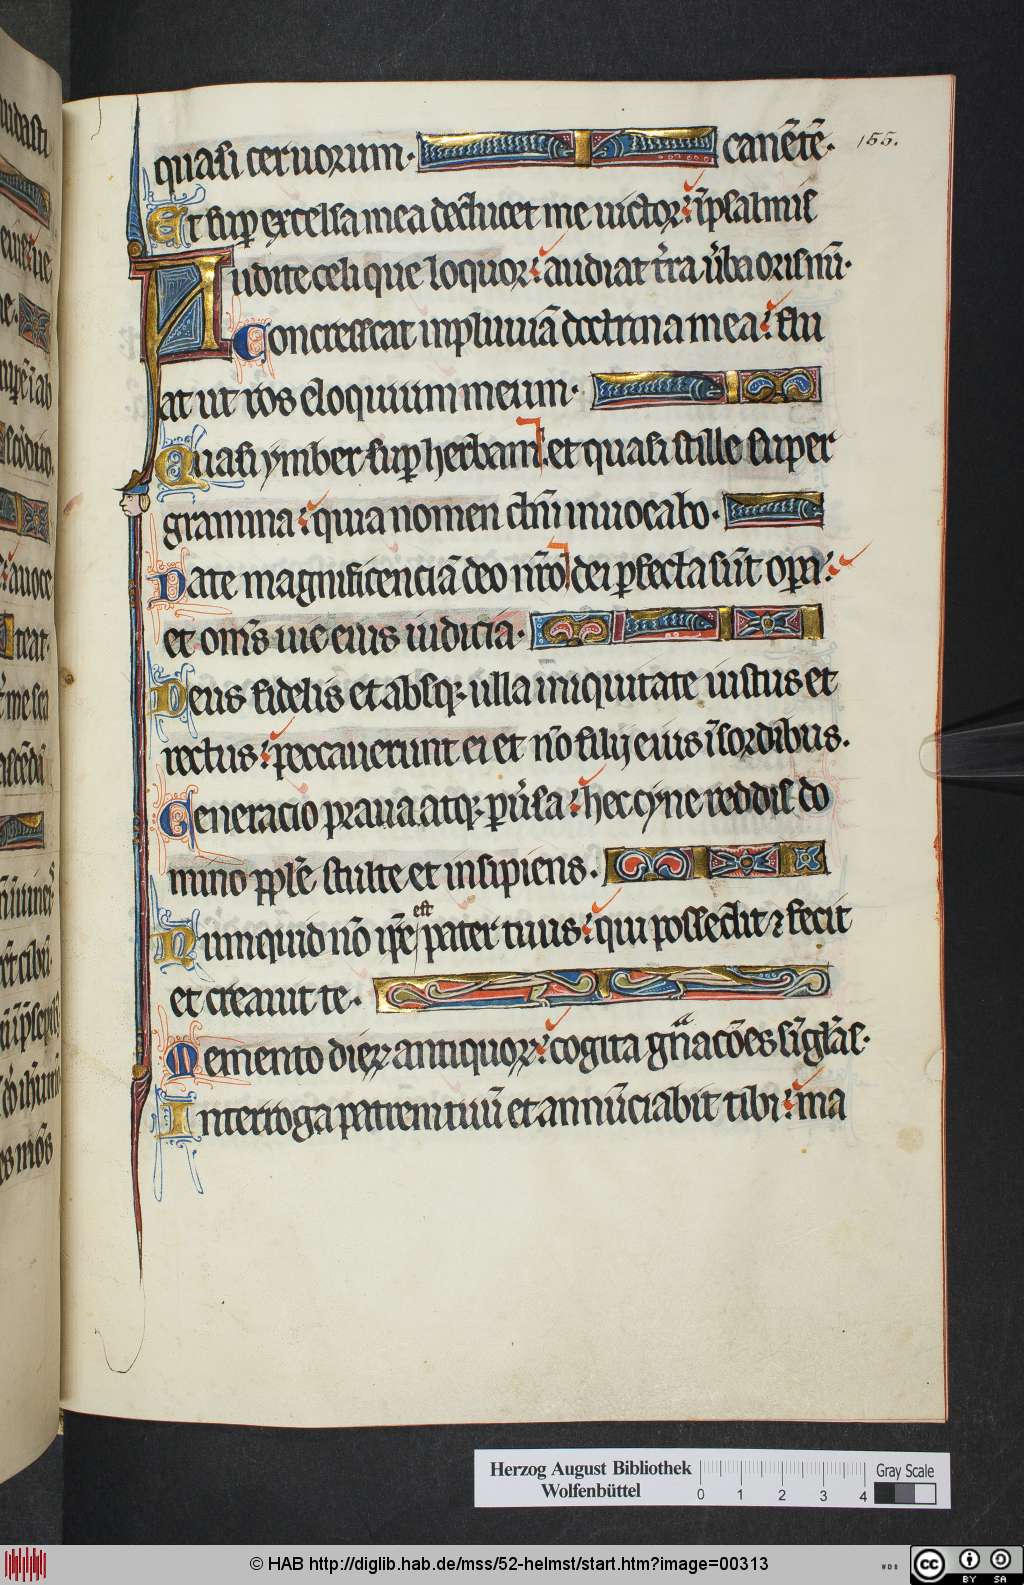 quasi ceruorum· canētē· 155.
Et sup excelsa mea deducet me uictor: ī psalmis
Audite celi que loquor: audiat t̄ra ūba oris mī·
Concrescat in pluuiā doctrina mea: flu
at ut ros eloquium meum·
Quasi ymber sup herbam: et quasi stille super
gramina: quia nomen dn̄i inuocabo·
Date magnificenciā deo nr̄o dei pfecta sūt opa:
et om̄s uie eius iudicia·
Deus fidelis et absq; ulla iniquitate iustus et
rectus: peccauerunt ei et nō filij eius ī sordibus·
Generacio praua atq; puersa: heccyne reddis do
mino pple stulte et insipiens·
Numquid nō ipse est pater tuus: qui possedit ⁊ fecit
et creauit te·
Memento dieꝝ antiquoꝝ: cogita gn̄acōes sīgl̄as·
Interroga patrem tuū et annūciabit tibi: ma
Herzog August Bibliothek
Wolfenbüttel
0 1 2 3 4
Gray Scale
© HAB http://diglib.hab.de/mss/52-helmst/start.htm?image=00313
cc BY SA